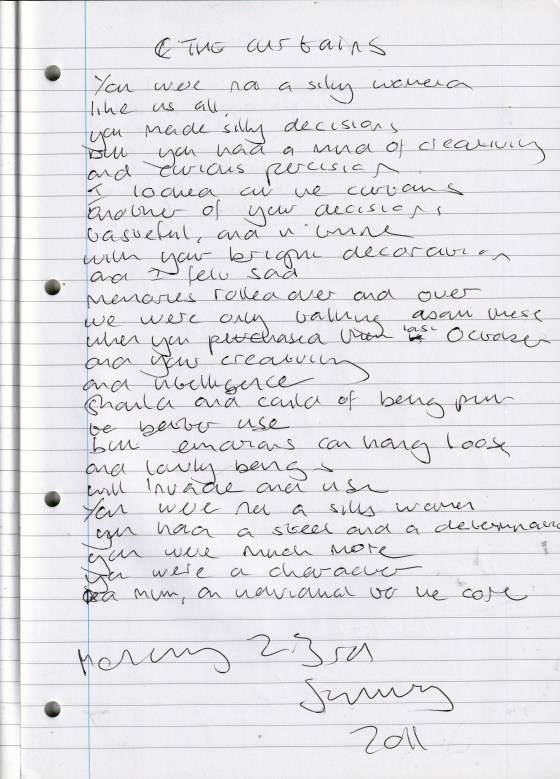 The curtains
You were not a silly women
like us all.
you made silly decisions
but you had a mind of creativity
and curious percision
I looked at the curtains
Another of your decisions
tasteful, and in tune
with your bright decoration
and I felt sad
memories rolled over and over
we were only talking about these
when you purchased them last October
and your creativity
and intelligence
should and could of being put
to better use
but emotions can hang loose
and lowly beings
will invade and use
You were not a silly women
you had a steel and a determination
you were much more
you were a character
a mum, an individual to the core
23rd
January
2011